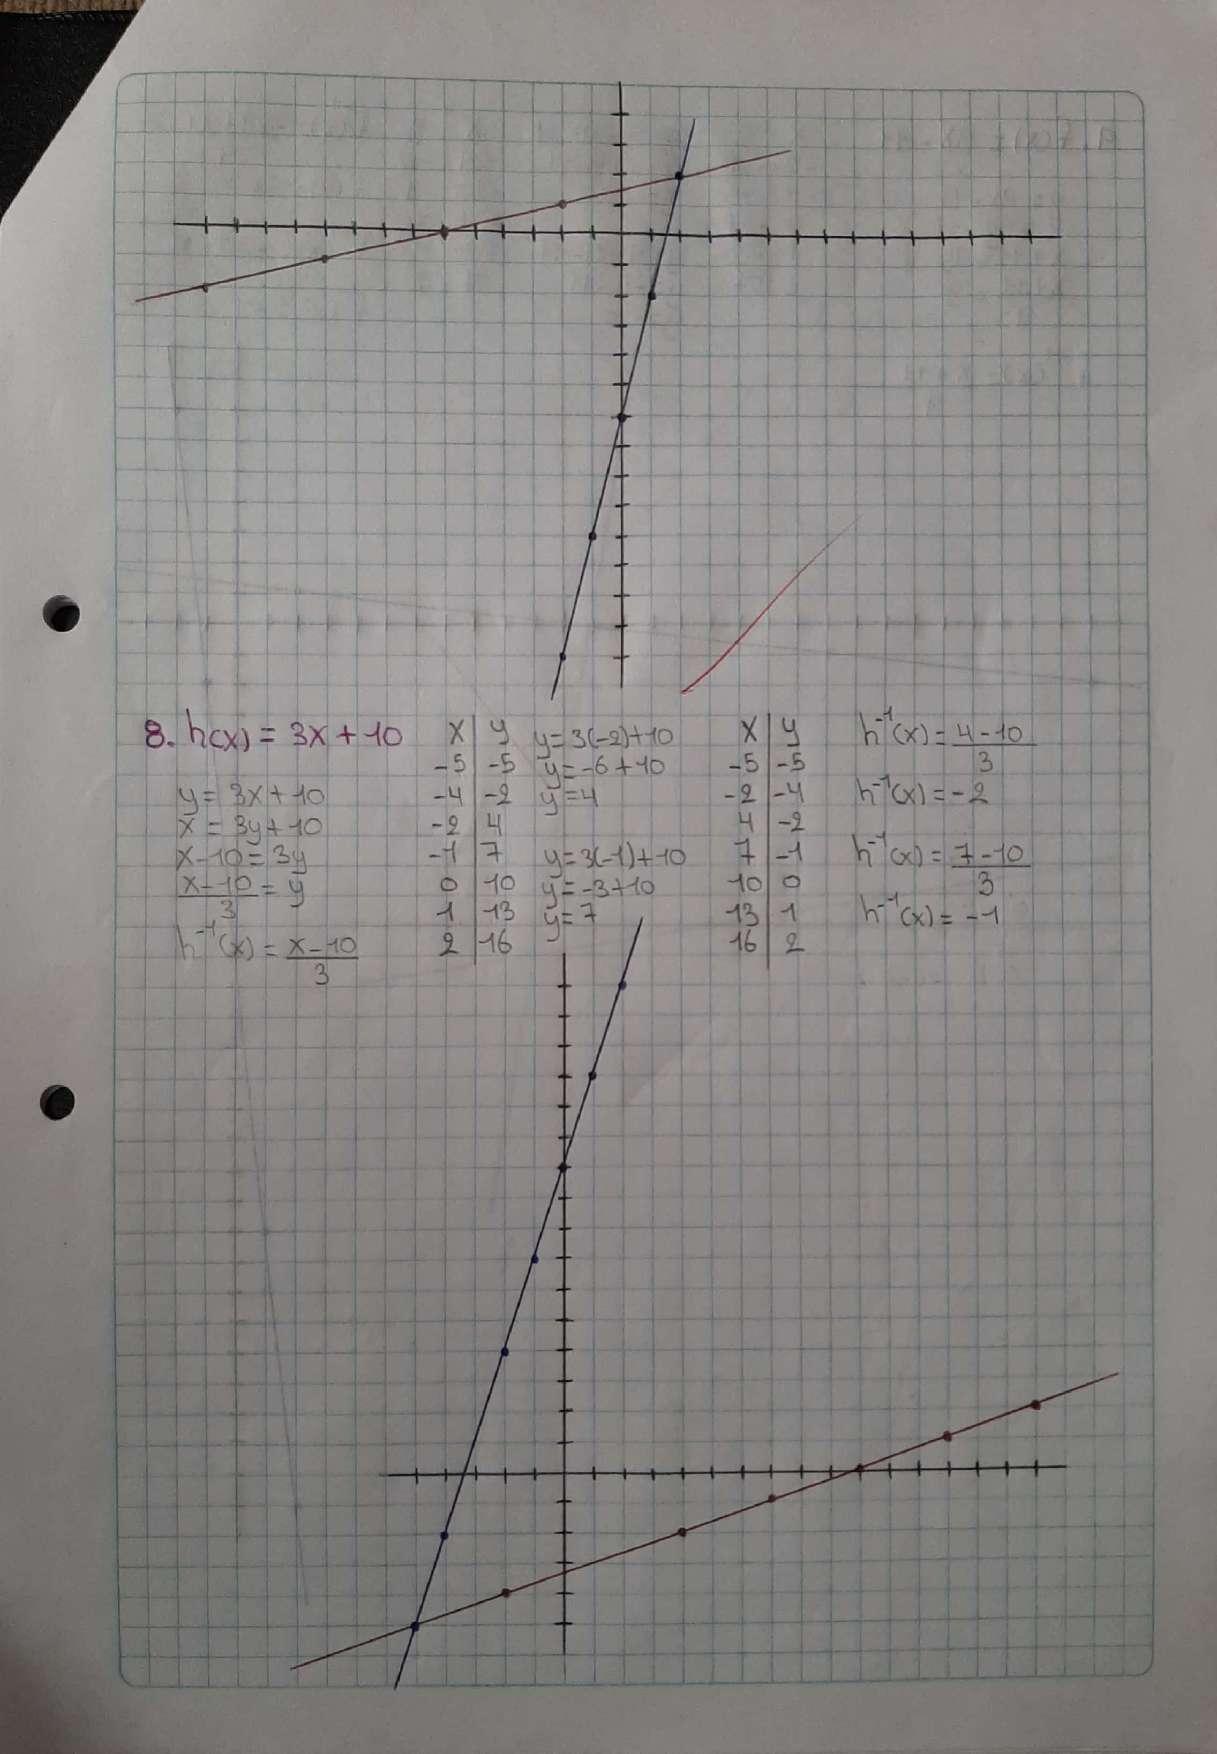 8. h(x) = 3x + 10
y = 3x + 10
x = 3y + 10
x - 10 = 3y
x - 10 = y
3
h⁻¹(x) = x - 10
3
x | y
-5 | -5
-4 | -2
-2 | 4
-1 | 7
0 | 10
1 | 13
2 | 16
y = 3(-2) + 10
y = -6 + 10
y = 4
y = 3(-1) + 10
y = -3 + 10
y = 7
x | y
-5 | -5
-2 | -4
4 | -2
7 | -1
10 | 0
13 | 1
16 | 2
h⁻¹(x) = 4 - 10
3
h⁻¹(x) = -2
h⁻¹(x) = 7 - 10
3
h⁻¹(x) = -1